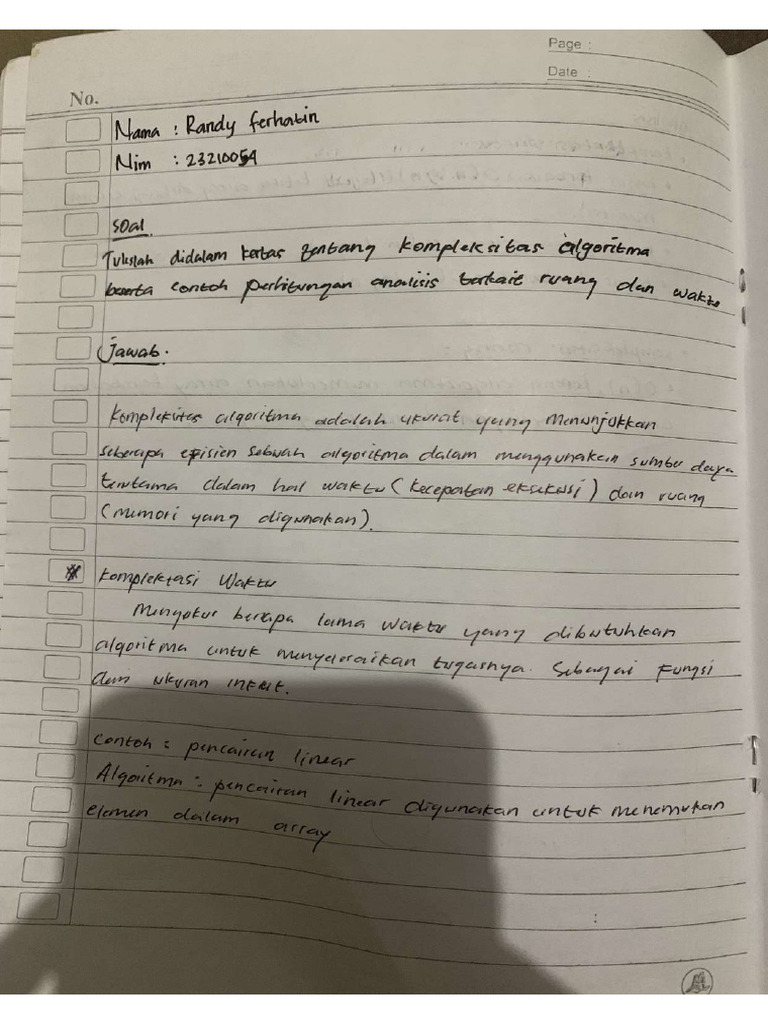 Page :
Date :
No.
Nama : Randy ferhatin
Nim : 23210054
Soal
Tulislah didalam kertas tentang kompleksitas algoritma
beserta contoh perhitungan analisis terkait ruang dan waktu
Jawab.
Kompleksitas algoritma adalah ukurat yang menunjukkan
seberapa episien sebuah algoritma dalam menggunakan sumber daya
terutama dalam hal waktu (kecepatan eksekusi) dan ruang
(memori yang digunakan).
* Komplektasi Waktu
Mengukur berapa lama waktu yang dibutuhkan
algoritma untuk menyelesaikan tugasnya. Sebagai Fungsi
dari ukuran input.
Contoh = pencairan linear
Algoritma = pencairan linear digunakan untuk menemukan
elemen dalam array